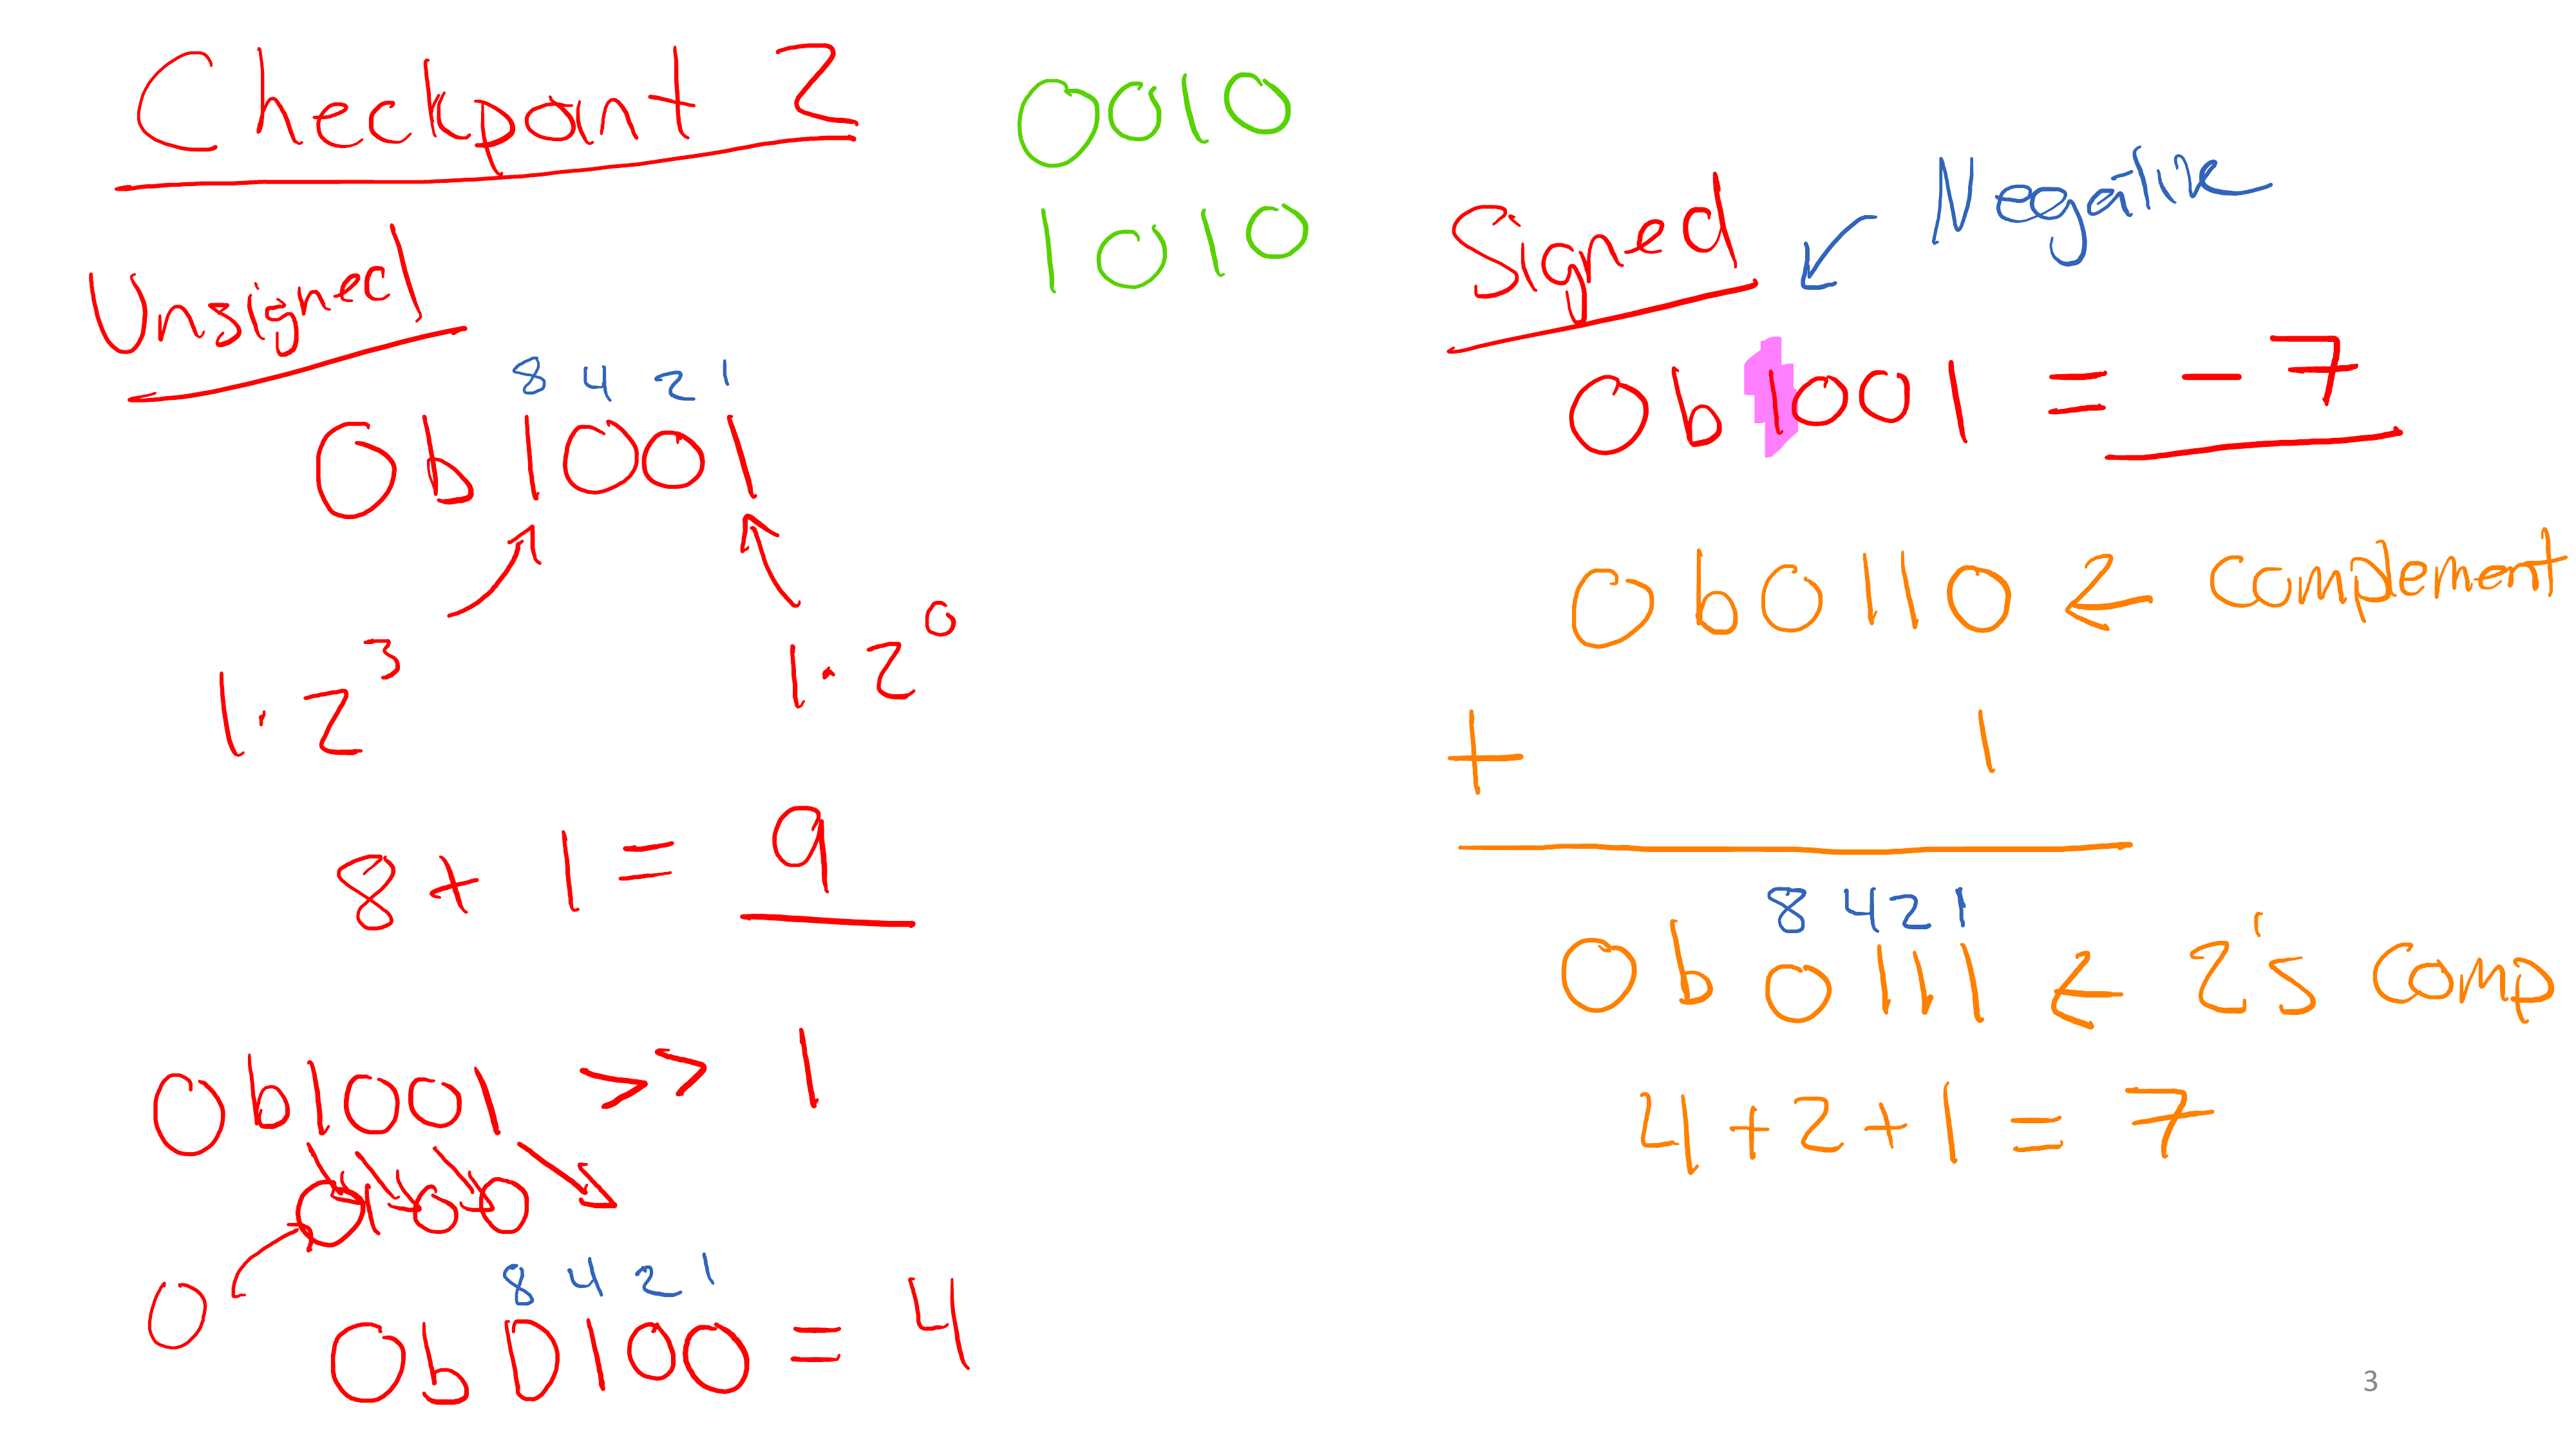 Checkpoint 2
0010
1010
Unsigned
8 4 2 1
0b1001
1·2³
1·2⁰
8 + 1 = 9
0b1001 >> 1
0100
0
8 4 2 1
0b0100 = 4
Signed
Negative
0b1001 = -7
0b0110 ← complement
+ 1
8 4 2 1
0b0111 ← 2's comp
4+2+1 = 7
3